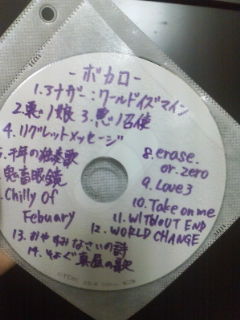 -ボカロ-
1.アナザー:ワールドイズマイン
2.悪ノ娘 3.悪ノ召使
4.リグレットメッセージ
5.千年の独奏歌
6.鬼畜眼鏡
7.Chilly Of
Febuary
8.erase
or zero
9.Love3
10.Take on me
11.WITHOUT END
12.WORLD CHANGE
13.おやすみなさいの詩
14.そよぐ 歌